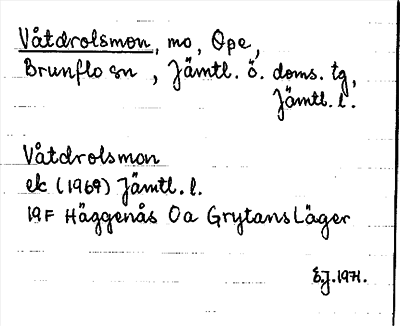 Våtdrolsmon, mo, Ope,
Brunflo sn, Jämtl. ö. doms. tg,
Jämtl. l.
Våtdrolsmon
ek (1969) Jämtl. l.
19F Häggenås 0a Grytans Läger
E.J. 1971.